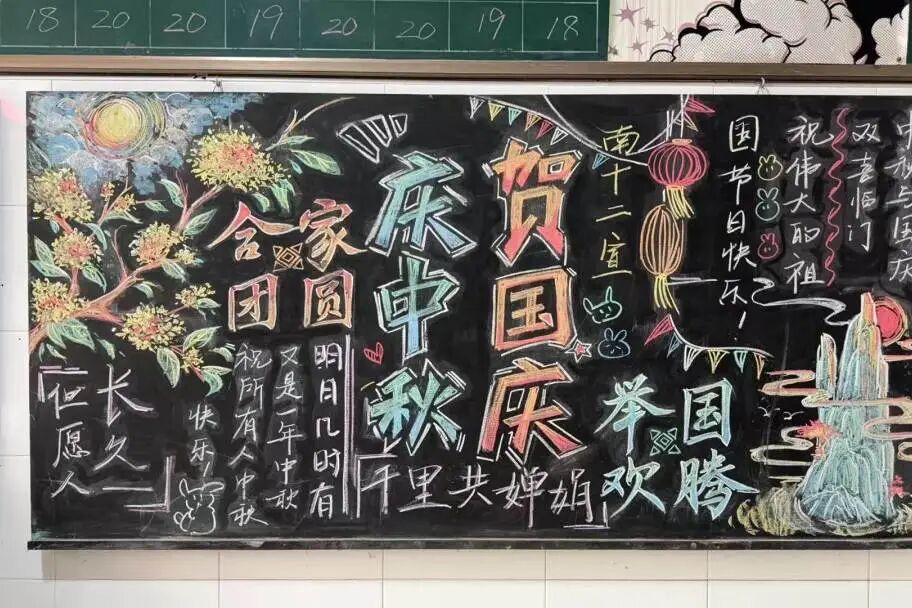 18 20 20 19 20 20 19 18
中秋与国庆
双喜临门
祝伟大的祖
国节日快乐！
南十二宣
贺国庆
庆中秋
举国
欢腾
合家
团圆
明月几时有
又是一年中秋
祝所有人中秋
快乐！
但愿人
长久
千里共婵娟